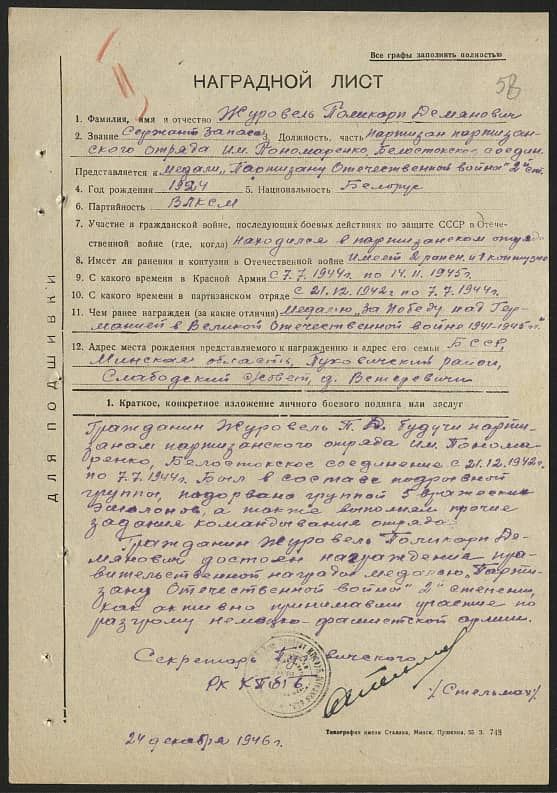 Все графы заполнить полностью
58
НАГРАДНОЙ ЛИСТ
1. Фамилия, имя и отчество Журовель Поликарп Демянович
2. Звание Сержант запаса 3. Должность, часть партизан партизан-
ского отряда им. Пономаренко, Белостокское соедин.
Представляется к медали „Партизану Отечественной война" 2й ст.
4. Год рождения 1924 5. Национальность Белорус
6. Партийность ВЛКСМ
7. Участие в гражданской войне, последующих боевых действиях по защите СССР в Отече-
ственной войне (где, когда) находился в партизанском отряде
8. Имеет ли ранения и контузии в Отечественной войне имеет 2 ранен. и 1 контузию
9. С какого времени в Красной Армии с 7.7.1944г. по 14.11.1945г.
10. С какого времени в партизанском отряде с 21.12.1942г по 7.7.1944г.
11. Чем ранее награжден (за какие отличия) Медалью „За Победу над Гер-
манией в Великой Отечественной войне 1941-1945гг"
12. Адрес места рождения представляемого к награждению и адрес его семьи БССР,
Минская область, Пуховичский район,
Слабодский с/совет, д. Ветеревичи
ДЛЯ ПОДШИВКИ
1. Краткое, конкретное изложение личного боевого подвига или заслуг
Гражданин Журовель П. Д. будучи парти-
занам партизанского отряда им. Понома-
ренко, Белостокское соединение с 21.12.1942г.
по 7.7.1944г. Был в составе подрывной
группы, подорвано группой 5 вражеских
эшалонов, а также выполнял прочие
задания командования отряда.
Гражданин Журовель Поликарп Де-
мянович достоен награждение пра-
вительственной награды медалью „Парти-
зану Отечественной войны" 2й степени,
как активно принимавши участие по
разгрому немецко-фашистской армии.
Секретарь Пуховичского
РК КП(б)Б
/Стельмах/
24 декабря 1946г.
Типография имени Сталина, Минск, Пушкина, 55 З. 743